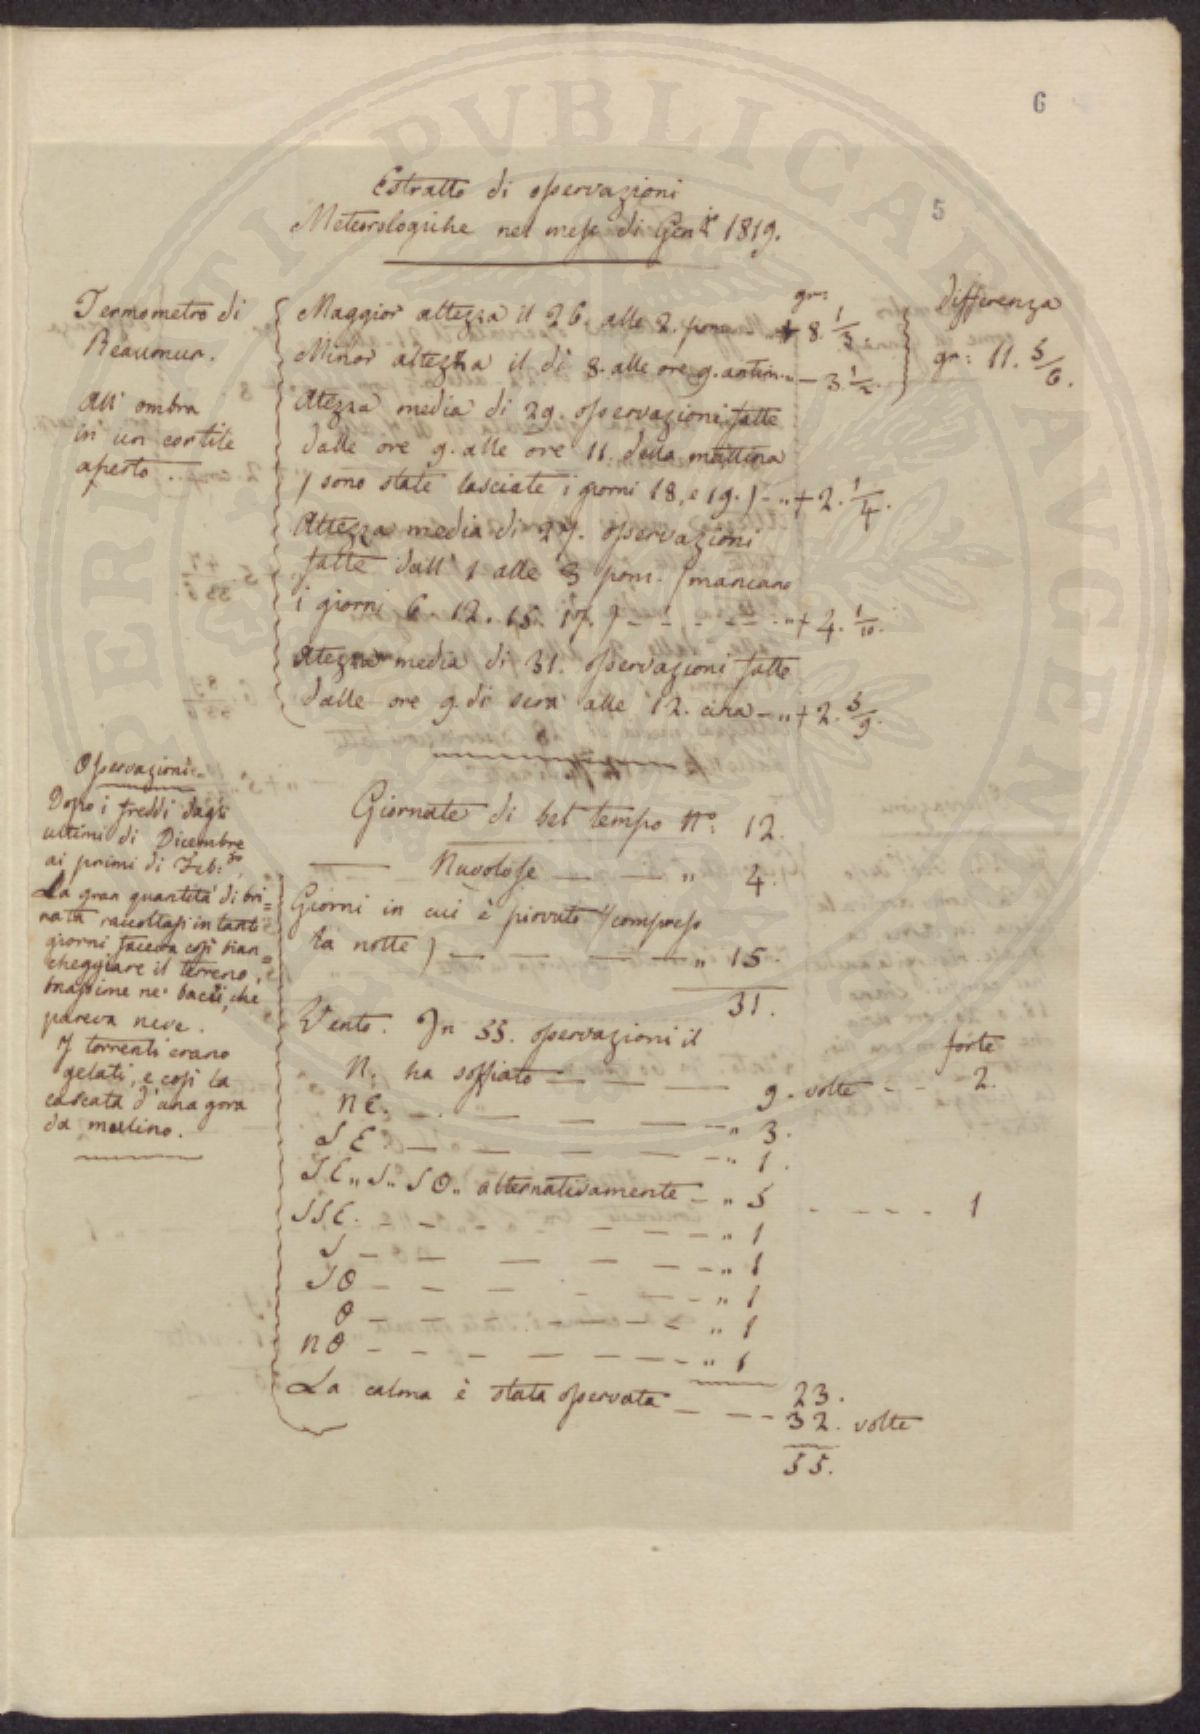 6
5
Estratto di osservazioni
Meteorologiche nel mese di Gen.re 1819.
Termometro di
Reaumur.
All' ombra
in un cortile
aperto
gr:
Maggior altezza il 26. alle 2. pom. - „ + 8. 1/3.
Minor altezza il dì 8. alle ore 9. antim. „ - 3. 1/2.
differenza
gr: 11. 5/6.
Altezza media di 29. osservazioni fatte
dalle ore 9. alle ore 11. della mattina
) sono state lasciate i giorni 18. e 19. ) - „ + 2. 1/4.
Altezza media di 27. osservazioni
fatte dall' 1 alle 3 pom. ( mancano
i giorni 6. 12. 15. 17. ) - - - - - „ + 4. 1/10.
Altezza media di 31. osservazioni fatte
dalle ore 9. di sera alle 12. circa - „ + 2. 5/9.
Osservazioni.
Dopo i freddi dagli
ultimi di Dicembre
ai primi di Feb:ro,
La gran quantità di bri=
nata raccoltasi in tanti
giorni faceva così bian=
cheggiare il terreno,
massime ne' bacii, che
pareva neve.
I torrenti erano
gelati, e così la
cascata d'una gora
da mulino.
Giornate di bel tempo N.o 12.
— Nuvolose — — „ 4.
Giorni in cui è piovuto ( compreso
la notte ) — — — — „ 15.
31.
Vento. In 55. osservazioni il
forte
N. ha soffiato — — — 9. volte - - 2.
NE. — — — — „ 3.
SE. — — — — „ 1.
SE „ S „ SO „ alternativamente - „ 5 - - - - 1
SSE. - - - - - - „ 1
S — — — — „ 1
SO - - - - - „ 1
O - - - - - „ 1
NO - - - - - „ 1
23.
La calma è stata osservata - - - 32. volte
55.